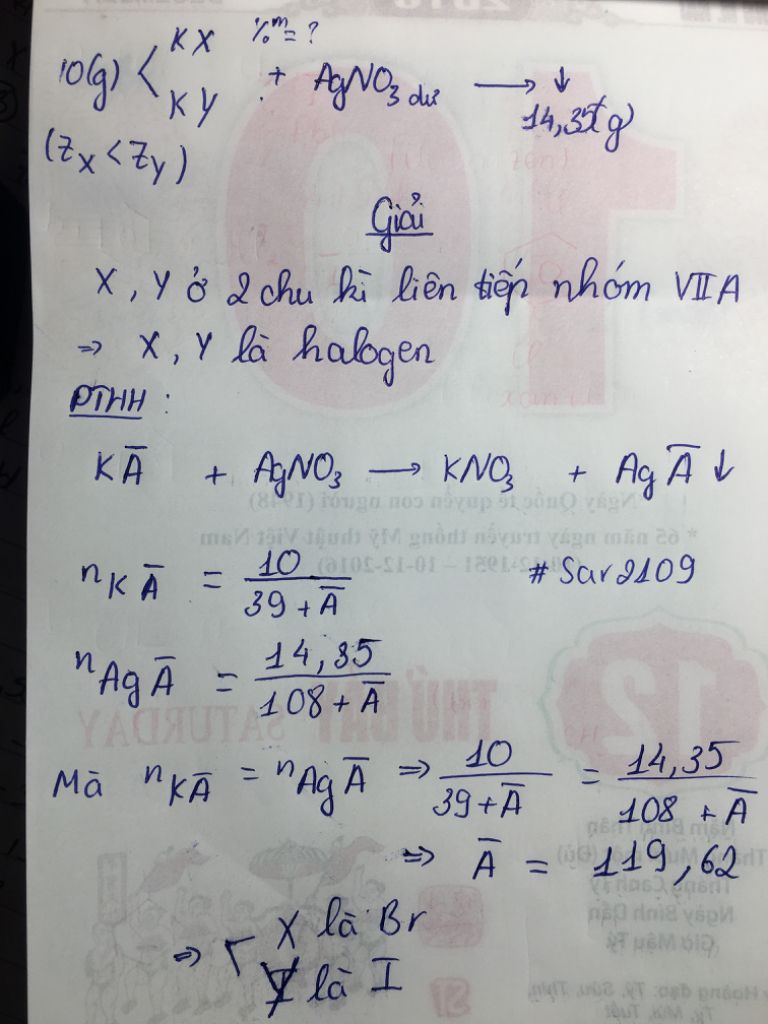 10(g) < KX %m = ?
KY + AgNO3 dư → ↓
14,35(g)
(ZX < ZY)
Giải
X, Y ở 2 chu kì liên tiếp nhóm VIIA
⇒ X, Y là halogen
PTHH :
KĀ + AgNO3 → KNO3 + AgĀ ↓
nKĀ = 10 / (39 + Ā) # Sar2109
nAgĀ = 14,35 / (108 + Ā)
Mà nKĀ = nAgĀ ⇒ 10 / (39 + Ā) = 14,35 / (108 + Ā)
⇒ Ā = 119,62
⇒ X là Br
Y là I
Ngày Quốc tế quyền con người (1948)
* 65 năm ngày truyền thống Mỹ thuật Việt Nam
(10-12-1951 – 10-12-2016)
10
12
THỨ BẢY SATURDAY
Năm Bính Thân
Tháng Canh Tý
Ngày Bính Dần
Giờ Mậu Tý